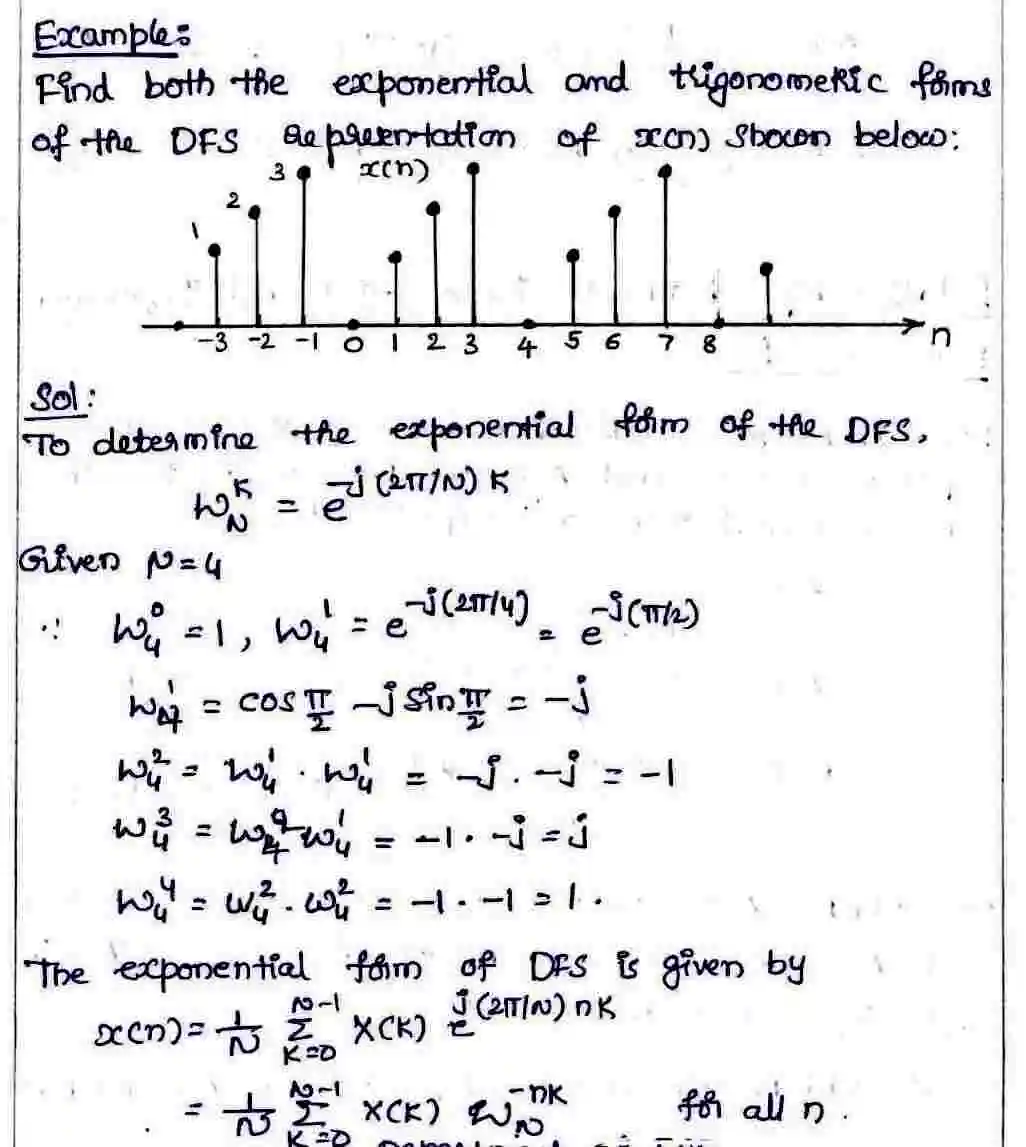 Example:
Find both the exponential and trigonometric forms
of the DFS representation of x(n) shown below:
3 x(n)
2
1
-3 -2 -1 0 1 2 3 4 5 6 7 8 n
Sol:
To determine the exponential form of the DFS.
W_N^K = e^{-j(2π/N)K}
Given N=4
∴ W_4^0 = 1, W_4^1 = e^{-j(2π/4)} = e^{-j(π/2)}
W_4^1 = cos π/2 - j sin π/2 = -j
W_4^2 = W_4^1 . W_4^1 = -j . -j = -1
W_4^3 = W_4^2 W_4^1 = -1 . -j = j
W_4^4 = W_4^2 . W_4^2 = -1 . -1 = 1.
The exponential form of DFS is given by
x(n) = 1/N Σ_{K=0}^{N-1} X(K) e^{j(2π/N)nK}
= 1/N Σ_{K=0}^{N-1} X(K) W_N^{-nK} for all n.